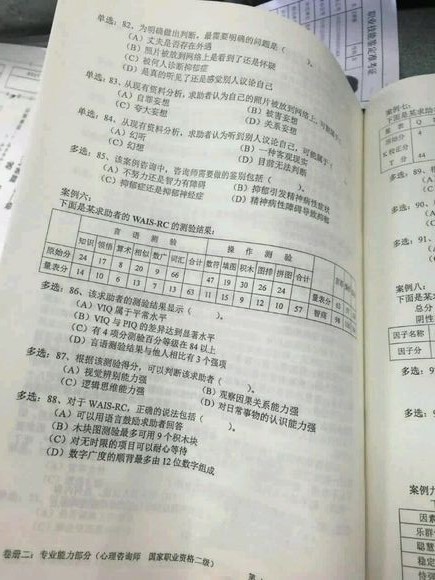 单选：82、为明确做出判断，最需要明确的问题是（ ）。
（A）丈夫是否存在外遇
（B）照片被放到网络上是看到了还是怀疑
（C）被何人诊断抑郁症
（D）是真的听见了还是感觉别人议论自己
单选：83、从现有资料分析，求助者认为自己的照片被放到网络上
（A）自罪妄想 （B）被害妄想
（C）夸大妄想 （D）关系妄想
单选：84、从现有资料分析，求助者认为听到别人议论自己，可能属于
（A）幻听 （B）一种客观现实
（C）幻想 （D）目前无法判断
多选：85、该案例咨询中，咨询师需要做的鉴别包括（ ）。
（A）不努力还是智力有障碍 （B）抑郁引发精神病性症状
（C）抑郁症还是抑郁神经症 （D）精神病性障碍导致抑郁
案例六：
下面是某求助者的 WAIS-RC 的测验结果：
言 语 测 验 操 作 测 验
知识 领悟 算术 相似 数广 词汇 合计 数符 填图 积木 图排 拼图 合计
原始分 24 17 8 20 9 66 47 19 30 26 24 量表分
量表分 14 10 6 13 7 13 63 11 15 9 12 10 57 智商
多选：86、该求助者的测验结果显示（ ）。
（A）VIQ 属于平常水平
（B）VIQ 与 PIQ 的差异达到显著水平
（C）有 4 项分测验百分等级在 84 以上
（D）言语测验结果与他人相比有 3 个强项
多选：87、根据该测验得分，可以判断该求助者（ ）。
（A）视觉辨别能力强 （B）观察因果关系能力强
（C）逻辑思维能力强 （D）对日常事物的认识能力强
多选：88、对于 WAIS-RC，正确的说法包括（ ）。
（A）可以用语言鼓励求助者回答
（B）木块图测验最多可用 9 个积木块
（C）对无时限的项目可以耐心等待
（D）数字广度的顺背最多由 12 位数字组成
卷册二：专业能力部分（心理咨询师 国家职业资格二级）
案例七：
下面是某求助
量 表
原始分
K 校正分
T 分 44
多选：89、
多选：90、
多选：91、
案例八：
下面是某
总分
阴性
因子名称
因子分
多选：9
多选：
案例九
因素
乐群
聪慧
稳定
恃强